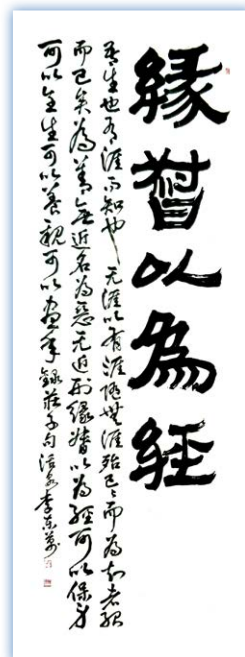 緣督以為經
吾生也有涯而知也无涯以有涯隨無涯殆已已而為知者殆
而已矣為善無近名為惡无近刑緣督以為經可以保身
可以全生可以養親可以盡年 錄莊子句 李東萬